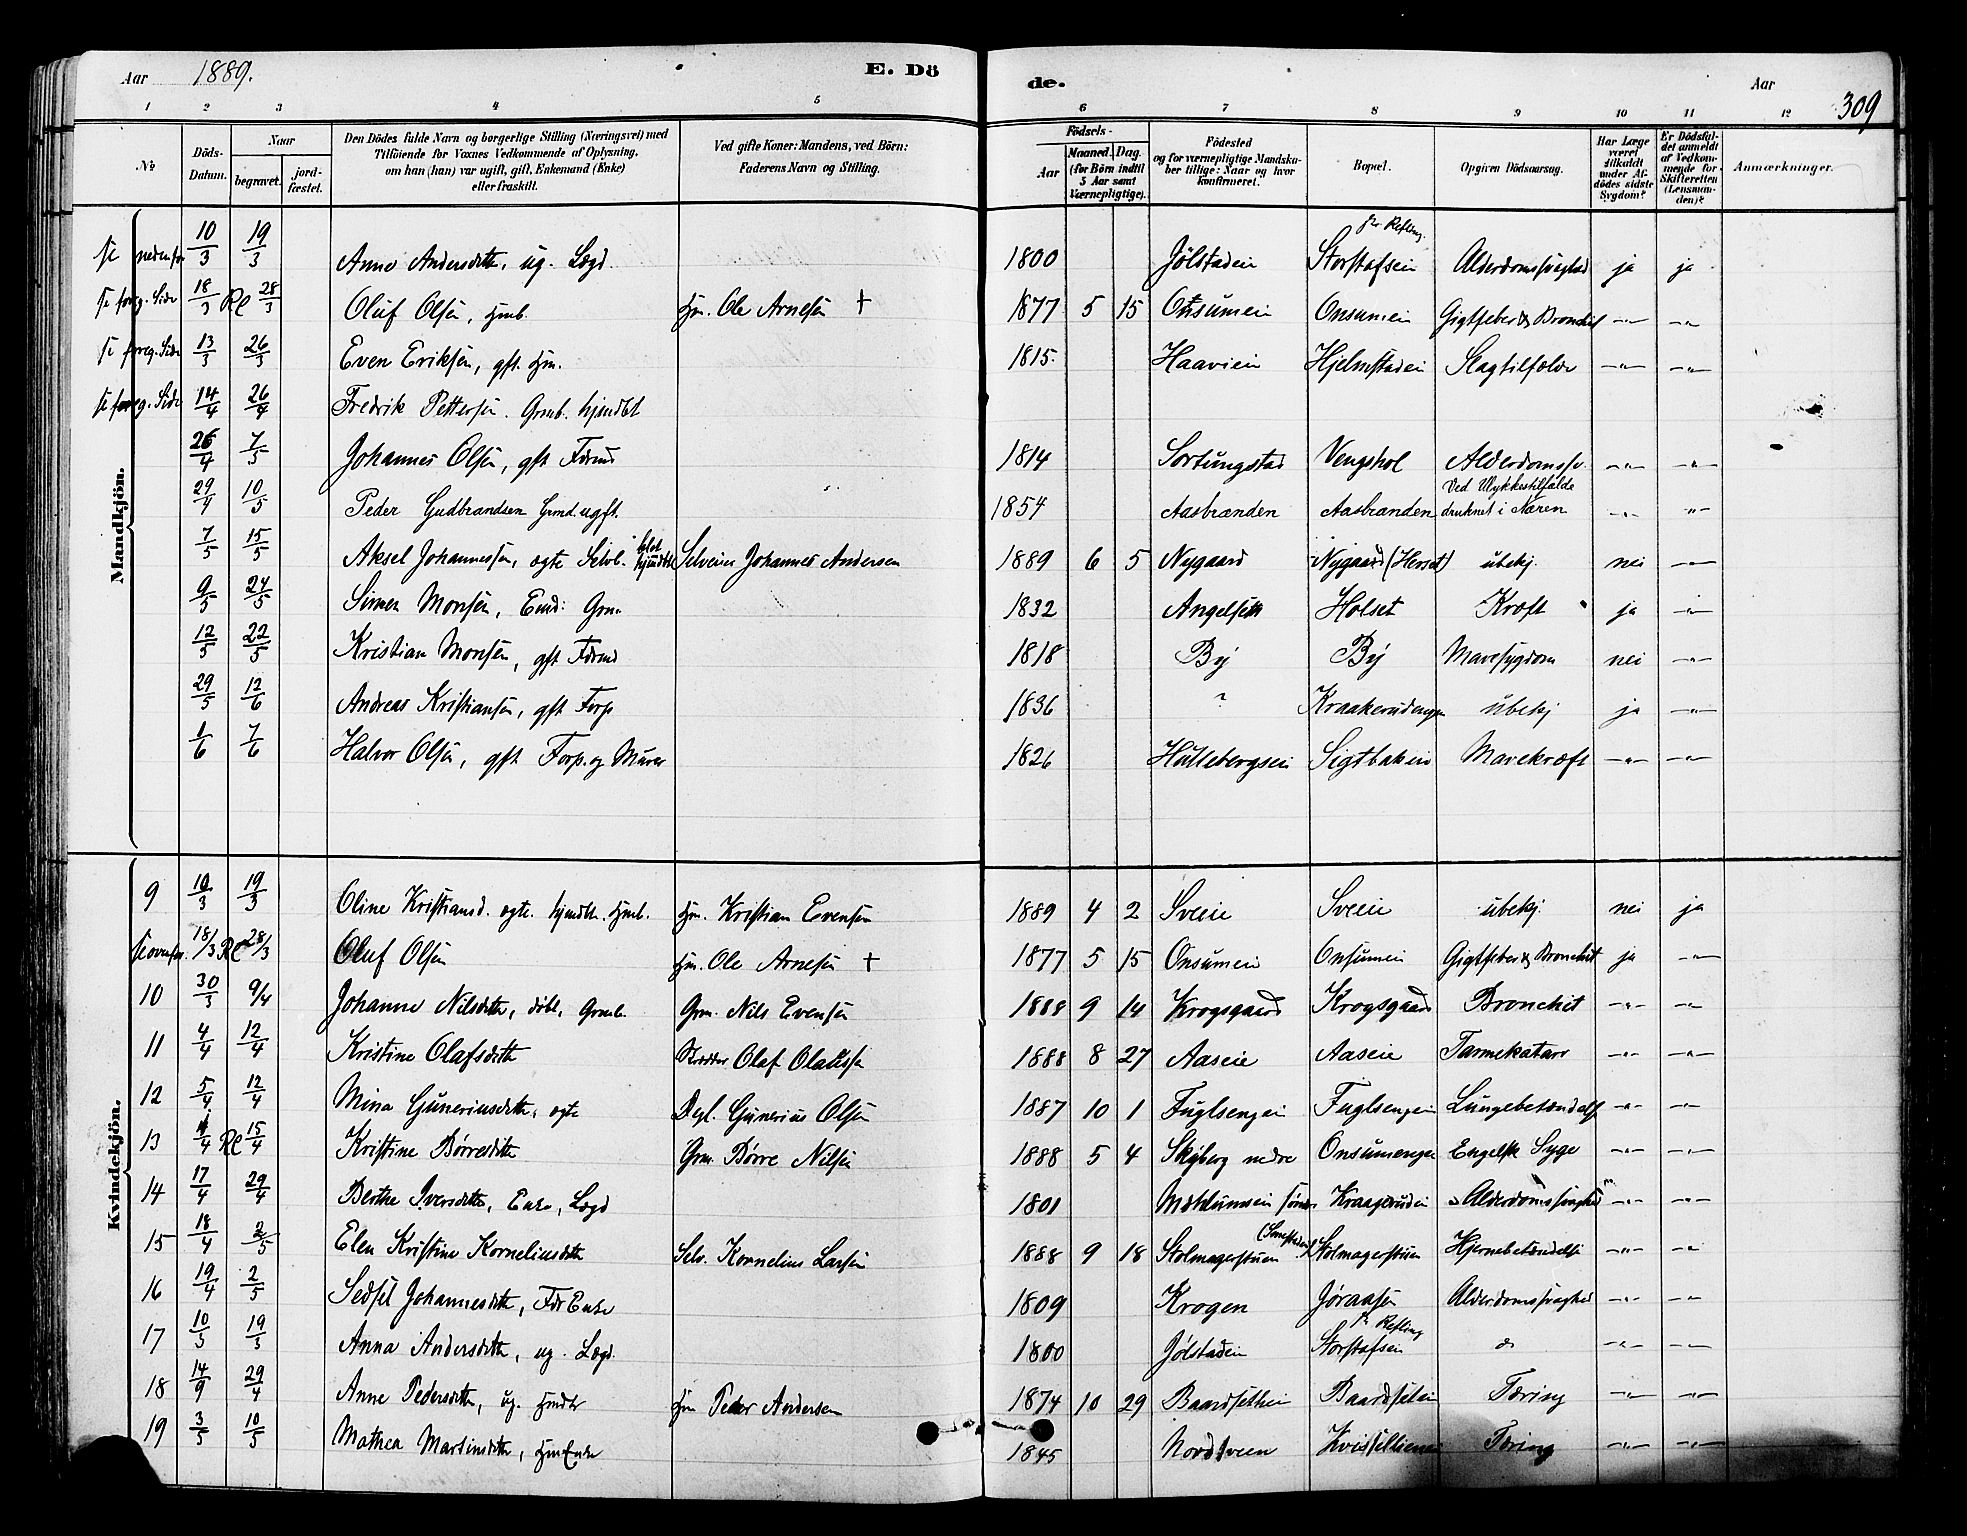 Aar 1889. E. Dö de. Aar 309
1 2 3 4 5 6 7 8 9 10 11 12
No
Döds-Datum.
Naar
begravet.
jordfæstet.
Den Dödes fulde Navn og borgerlige Stilling (Næringsvei) med
Tilföiende for Voxnes Vedkommende af Oplysning,
om han (hun) var ugift, gift, Enkemand (Enke)
eller fraskilt.
Ved gifte Koner: Mandens, ved Börn:
Faderens Navn og Stilling.
Födsels-
Aar
Maaned. Dag.
(for Börn indtil
5 Aar samt
Værnepligtige).
Födested
og for værnepligtige Mandskaber tillige: Naar og hvor
konfirmeret.
Bopæl.
Opgiven Dödsaarsag.
Har Læge
været
tilkaldt
under Afdödes sidste
Sygdom?
Er Dödsfaldet anmeldt
af Vedkommende for
Skifteretten
(Lensmanden)?
Anmærkninger.
Mandkjön.
se nedenfor 10/3 19/3 Anne Andersdtr, ug. Lægd. 1800 Jølstadeie Storstafseie Alderdomssvaghed ja ja
se foreg. Side 18/3 28/3 Oluf Olsen, Hmb. Hm. Ole Arnesen † 1877 5 15 Onsumeie Onsumeie Gigtfeber & Bronchit -"- -"-
se foreg. Side 13/3 26/3 Even Eriksen, gft. Hm. 1815. Haavieie Hjelmstadeie Slagtilfælde -"- -"-
se foreg. Side 14/4 26/4 Fredrik Pettersen. Grmb. hjemdbt
26/4 7/5 Johannes Olsen, gft 1814 Sortungstad Vengshol Alderdomssv. -"- -"-
29/4 10/5 Peder Gudbrandsen Grmd. ugft. 1854 Aasbrænden Aasbrænden Ved Ulykkestilfælde druknet i Næren -"- -"-
7/5 15/5 Aksel Johannessen, ægte Selvb. hjemdbt Selveier Johannes Andersen 1889 6 5 Nygaard Nygaard (Herset) ubekj. nei -"-
9/5 24/5 Simen Monsen, Emd: Grm 1832 Holset Kræft ja -"-
12/5 22/5 Kristian Monsen, gft 1818 By By Mavesygdom nei -"-
29/5 12/6 Andreas Kristiansen, gft Forp 1836 ? ubekj ja -"-
1/6 7/6 Halvor Olsen, gft Forp. og Murer 1826 Hullebergseie Sigtbakeie Mavekræft -"- -"-
Kvindekjön.
9 10/3 19/3 Oline Kristiansd. ægte. hjemdbt. Hmb. Hm. Kristian Evensen 1889 4 2 Sveie Sveie ubekj. nei ja
se ovenfor. 18/3 28/3 Oluf Olsen Hm. Ole Arnesen † 1877 5 15 Onsumeie Onsumeie Gigtfeber & Bronchit ja -"-
10 30/3 9/4 Johanne Nilsdtr, døbt, Grmb. Grm. Nils Evensen 1888 9 14 Krogsgaard Krogsgaard Bronchit -"- -"-
11 4/4 12/4 Kristine Olafsdtr Skrædder Olaf Olaussen 1888 8 27 Aaseie Aaseie Tarmekatarr -"- -"-
12 5/4 12/4 Mina Guneriusdtr, ægte Dagl. Gunerius Olsen 1887 10 1 Fuglsengeie Fuglsengeie Lungebetændelse -"- -"-
13 15/4 Kristine Børresdtr Grm. Børre Nilsen 1888 5 4 Skyberg nedre Onsumengen Engelsk Syge -"- -"-
14 17/4 29/4 Berthe Iversdtr, Enke, Lægd 1801 Kraagerudeie Alderdomssvaghed -"- -"-
15 18/4 2/5 Elen Kristine Korneliusdtr Selv. Kornelius Larsen 1888 9 18 Stolmagerstuen Stolmagerstuen Hjernebetændelse -"- -"-
16 19/4 2/5 Sedsel Johannesdtr, Enke 1809 Krogen Jøraasen Alderdomssvaghed -"- -"-
17 10/3 19/3 Anna Andersdtr, ug. Lægd. 1800 Jølstadeie Storstafseie do -"- -"-
18 14/9 29/4 Anne Pedersdtr, ug. Hm Peder Andersen 1874 10 29 Baardsetheie Baardseteie Tæring -"- -"-
19 3/5 10/5 Mathea Martinsdtr, Hm Enke 1845 Nordsveen Tæring -"- -"-